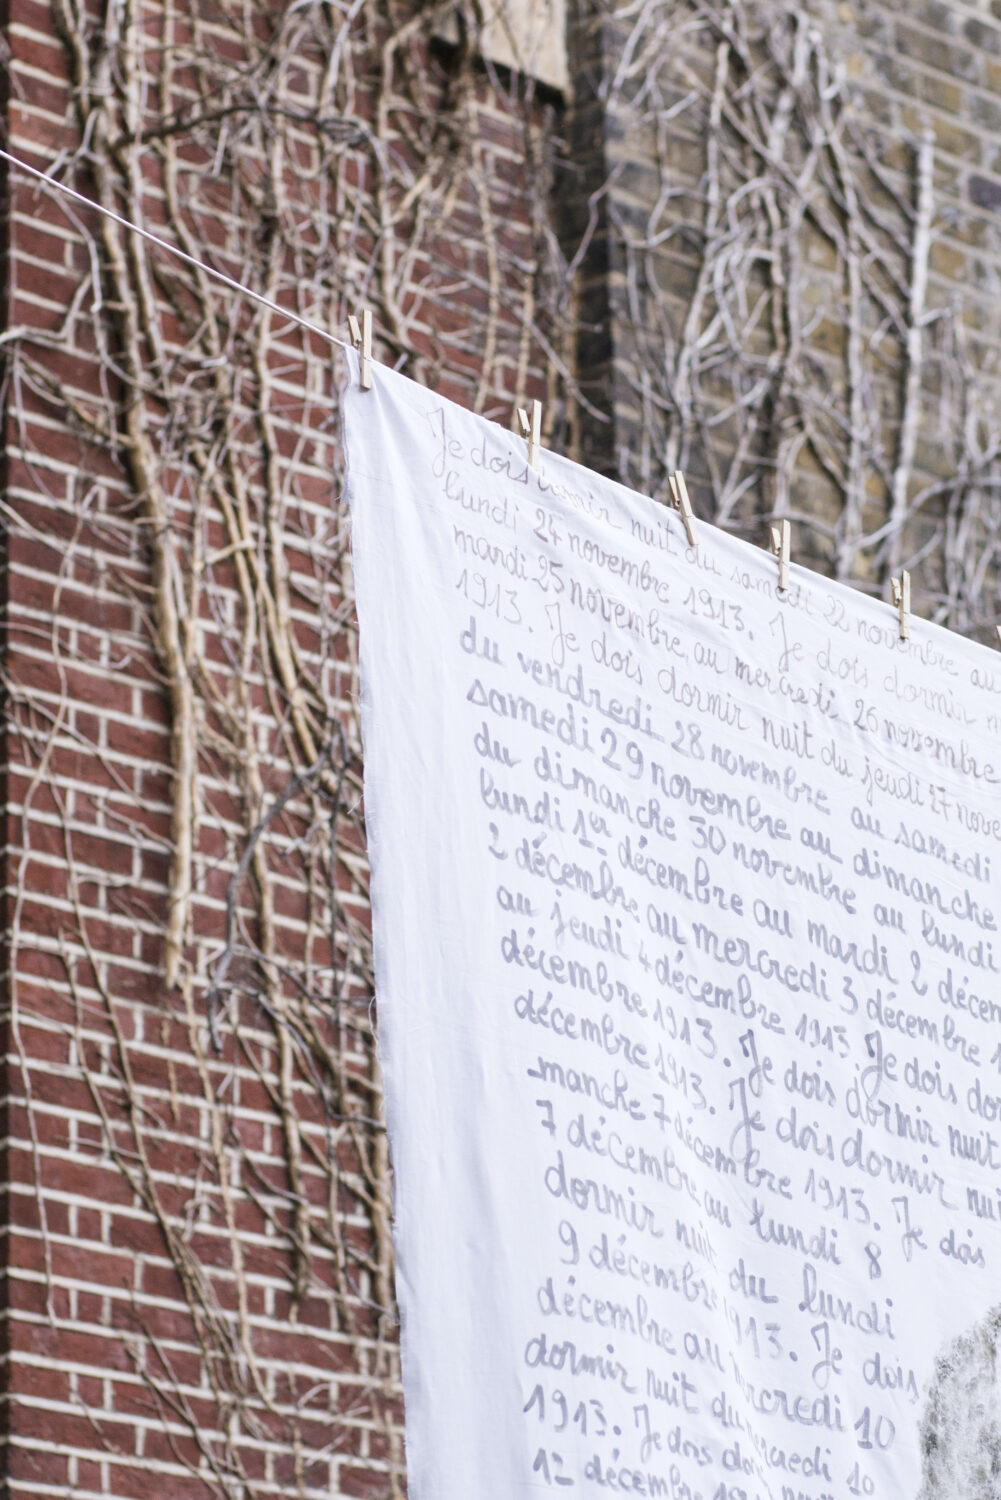 Je dois dormir nuit du samedi 22 novembre au
lundi 24 novembre 1913. Je dois dormir n
mardi 25 novembre, au mercredi 26 novembre
1913. Je dois dormir nuit du jeudi 27 nove
du vendredi 28 novembre au samedi
samedi 29 novembre au dimanche
du dimanche 30 novembre au lundi
lundi 1er décembre au mardi 2 décem
2 décembre au mercredi 3 décembre 1
au jeudi 4 décembre 1913 Je dois do
décembre 1913. Je dois dormir nuit
décembre 1913. Je dois dormir nui
-manche 7 décembre 1913. Je dois
7 décembre au lundi 8
dormir nuit du lundi
9 décembre 1913. Je dois
décembre au mercredi 10
dormir nuit du mercredi 10
1913. Je dois do
12 décembre